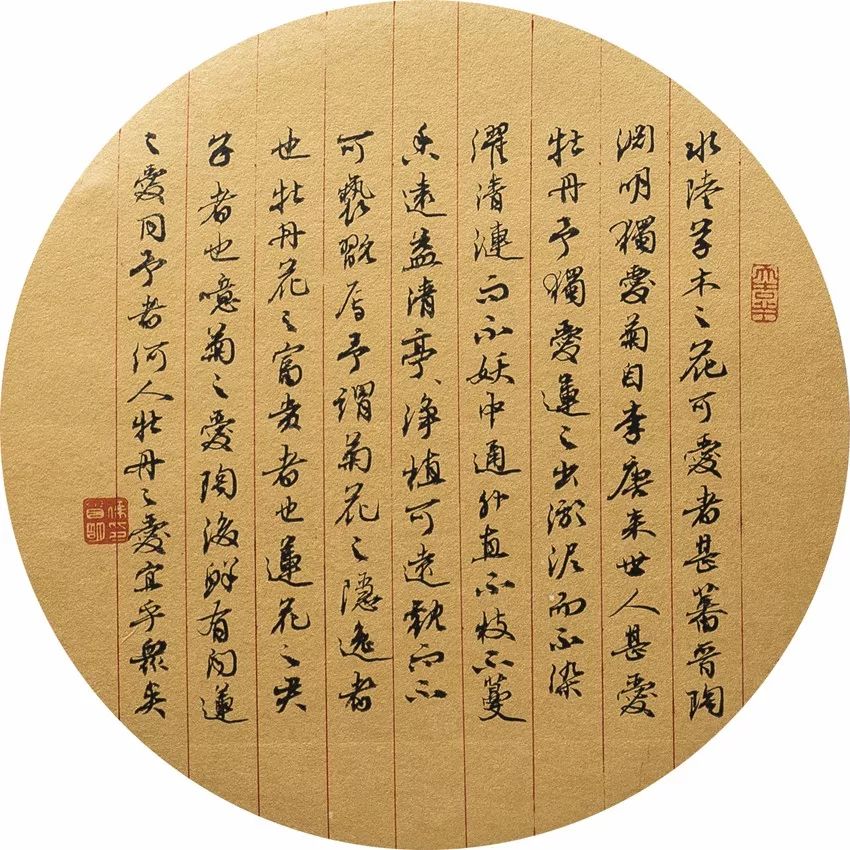 水陸草木之花可愛者甚蕃晉陶
淵明獨愛菊自李唐来世人甚愛
牡丹予獨愛蓮之出淤泥而不染
濯清漣而不妖中通外直不枝不蔓
香遠益清亭、淨植可遠觀而不
可褻翫焉予謂菊花之隱逸者
也牡丹花之富貴者也蓮花之君
子者也噫菊之愛陶後鮮有聞蓮
之愛同予者何人牡丹之愛宜乎衆矣
大吉羊